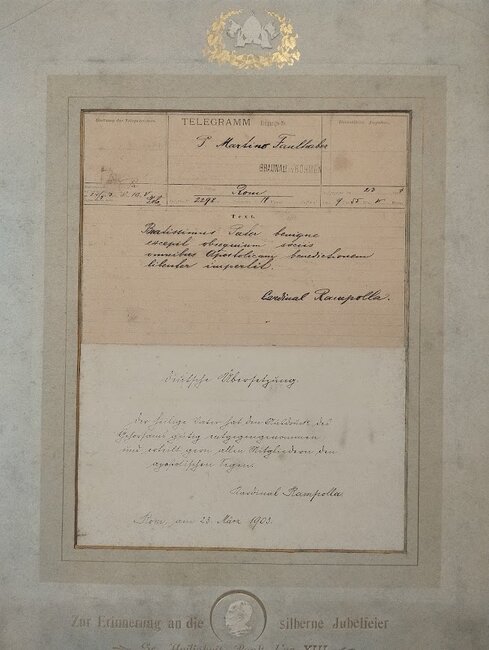 TELEGRAMM
P. Martino Faulhaber
BRAUNAU BÖHMEN
Rom
2298
Text.
Beatissimus Pater benigne
excepit obsequium sociis
omnibus Apostolicam benedictionem
libenter impertit.
Cardinal Rampolla.
Deutsche Übersetzung.
Der heilige Vater hat den Ausdruck des
Gehorsams gütig entgegengenommen
und erteilt gern allen Mitgliedern den
apostolischen Segen.
Cardinal Rampolla
Rom, am 23. März 1903.
Zur Erinnerung an die silberne Jubelfeier
XIII